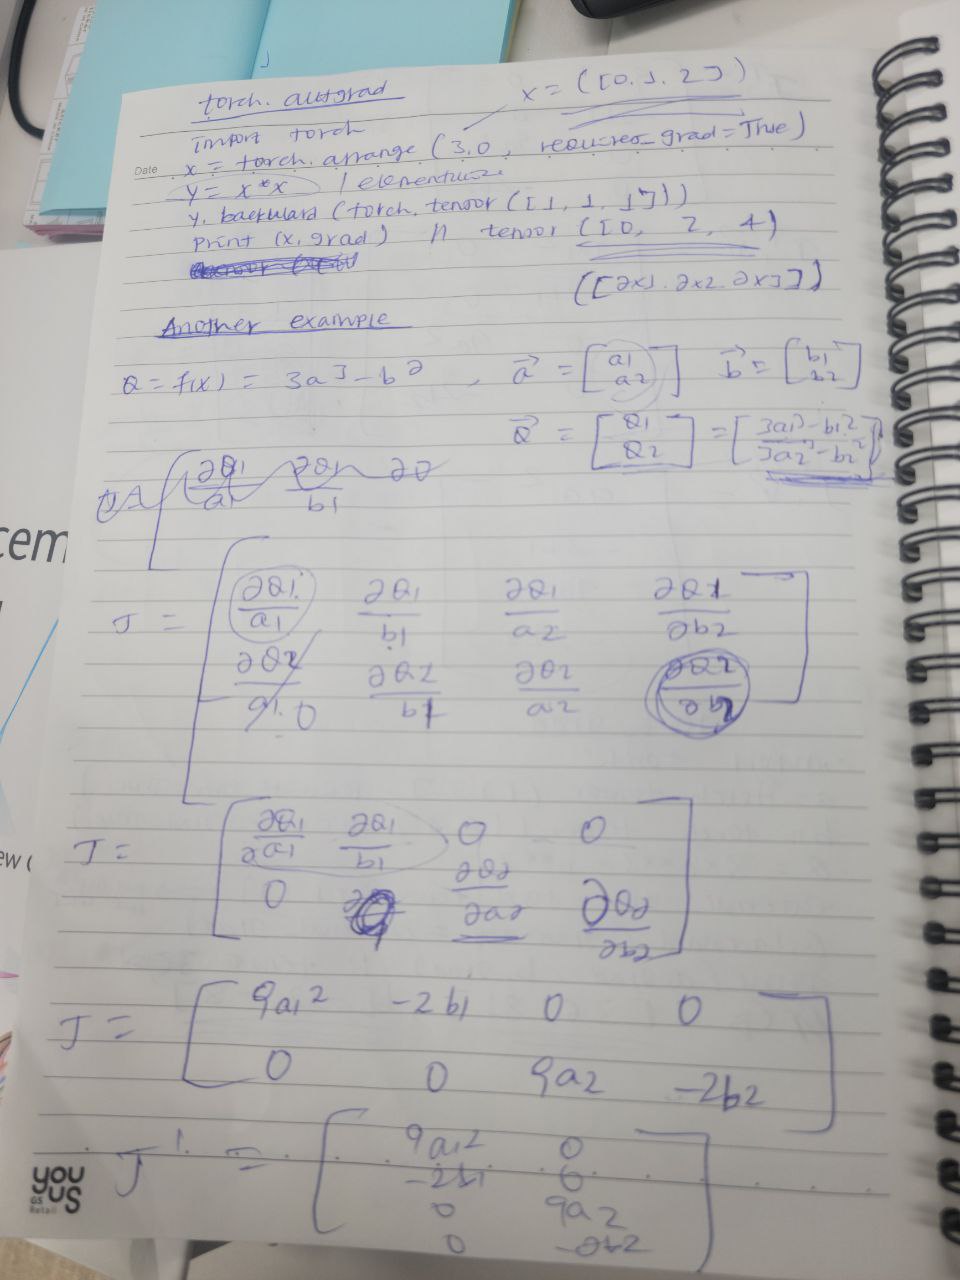 torch.autgrad
x = ([0.1.2])
import torch
Date
x = torch.arrange (3.0, requires_grad=True)
y = x*x / elementwise
y. backward (torch.tensor ([1, 1, 1]))
Print (x.grad) // tensor ([0, 2, 4)
([2x1. 2x2. 2x3])
Another example
Q = f(x) = 3a³ - b² , a⃗ = [a1 a2] b⃗ = [b1 b2]
Q⃗ = [Q1 Q2] = [3a1³ - b1² 3a2³ - b2²]
∂Q1/a1 ∂Q1/b1
J = [∂Q1/a1 ∂Q1/b1 ∂Q1/a2 ∂Q1/∂b2
∂Q2/a1 0 ∂Q2/b1 ∂Q2/a2 ∂Q2/∂b2]
J = [∂Q1/∂a1 ∂Q1/b1 0 0
0 ∂Q2/∂a2 ∂Q2/∂b2]
J = [9a1² -2b1 0 0
0 0 9a2 -2b2]
J' = [9a1² 0
-2b1 0
0 9a2
0 -2b2]
YOU
US
GS
Retail
cem
ew